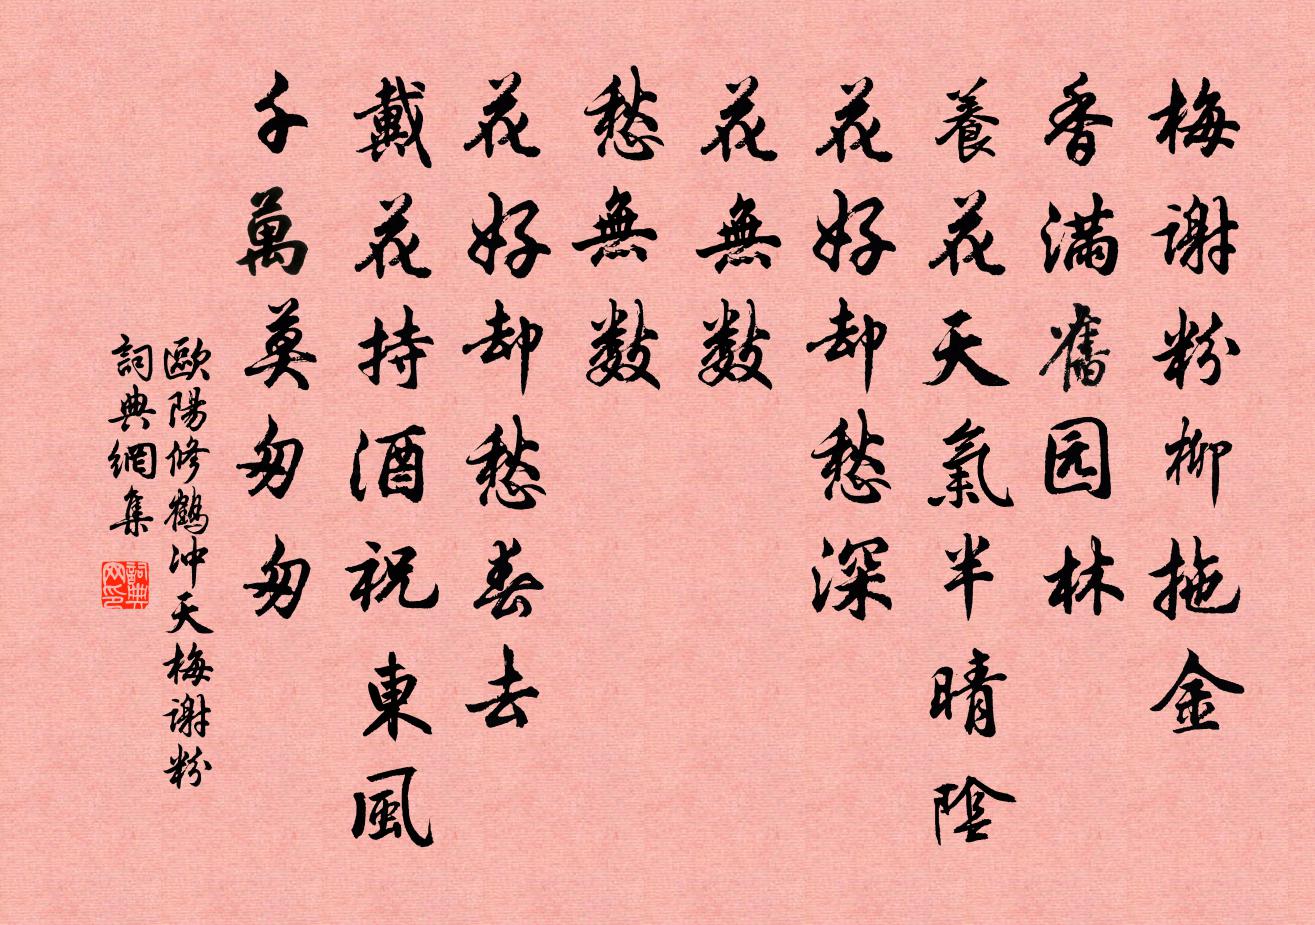 梅謝粉柳拖金
香滿舊园林
養花天氣半晴陰
花好却愁深
花無數
愁無數
花好却愁春去
戴花持酒祝東風
千萬莫匆匆
歐陽修鶴冲天梅謝粉
詞典網集
詞典网印